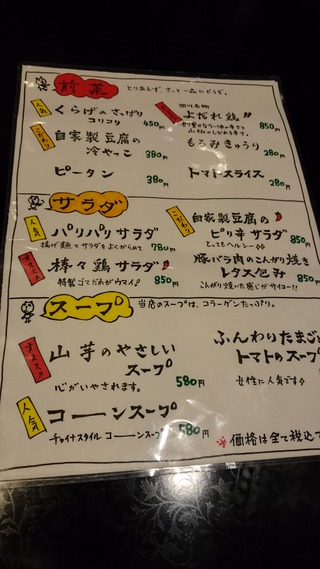 前菜 とりあえず、さっと一品にどうぞ。
人気 くらげのさっぱり
コリコリ 450円
四川名物
よだれ鶏 850円
こだわり 自家製豆腐の
冷やっこ 380円
もろみきゅうり 280円
ピータン 380円
トマトスライス 280円
サラダ
人気 パリパリサラダ
揚げ麺とサラダをよくからめて 780円
こだわり 自家製豆腐の
ピリ辛サラダ
とってもヘルシー 850円
オススメ 棒々鶏サラダ
特製ゴマだれがウマイ! 850円
豚バラ肉のこんがり焼き
レタス包み 850円
こんがり焼いた感じがサイコー!!
スープ 当店のスープは、コラーゲンたっぷり。
オススメ 山芋のやさしい
スープ
心がいやされます。 580円
ふんわりたまご
トマトのスープ
女性に人気です
人気 コーーンスープ
チャイナスタイル コーーンスープ 580円
※価格は全て税込